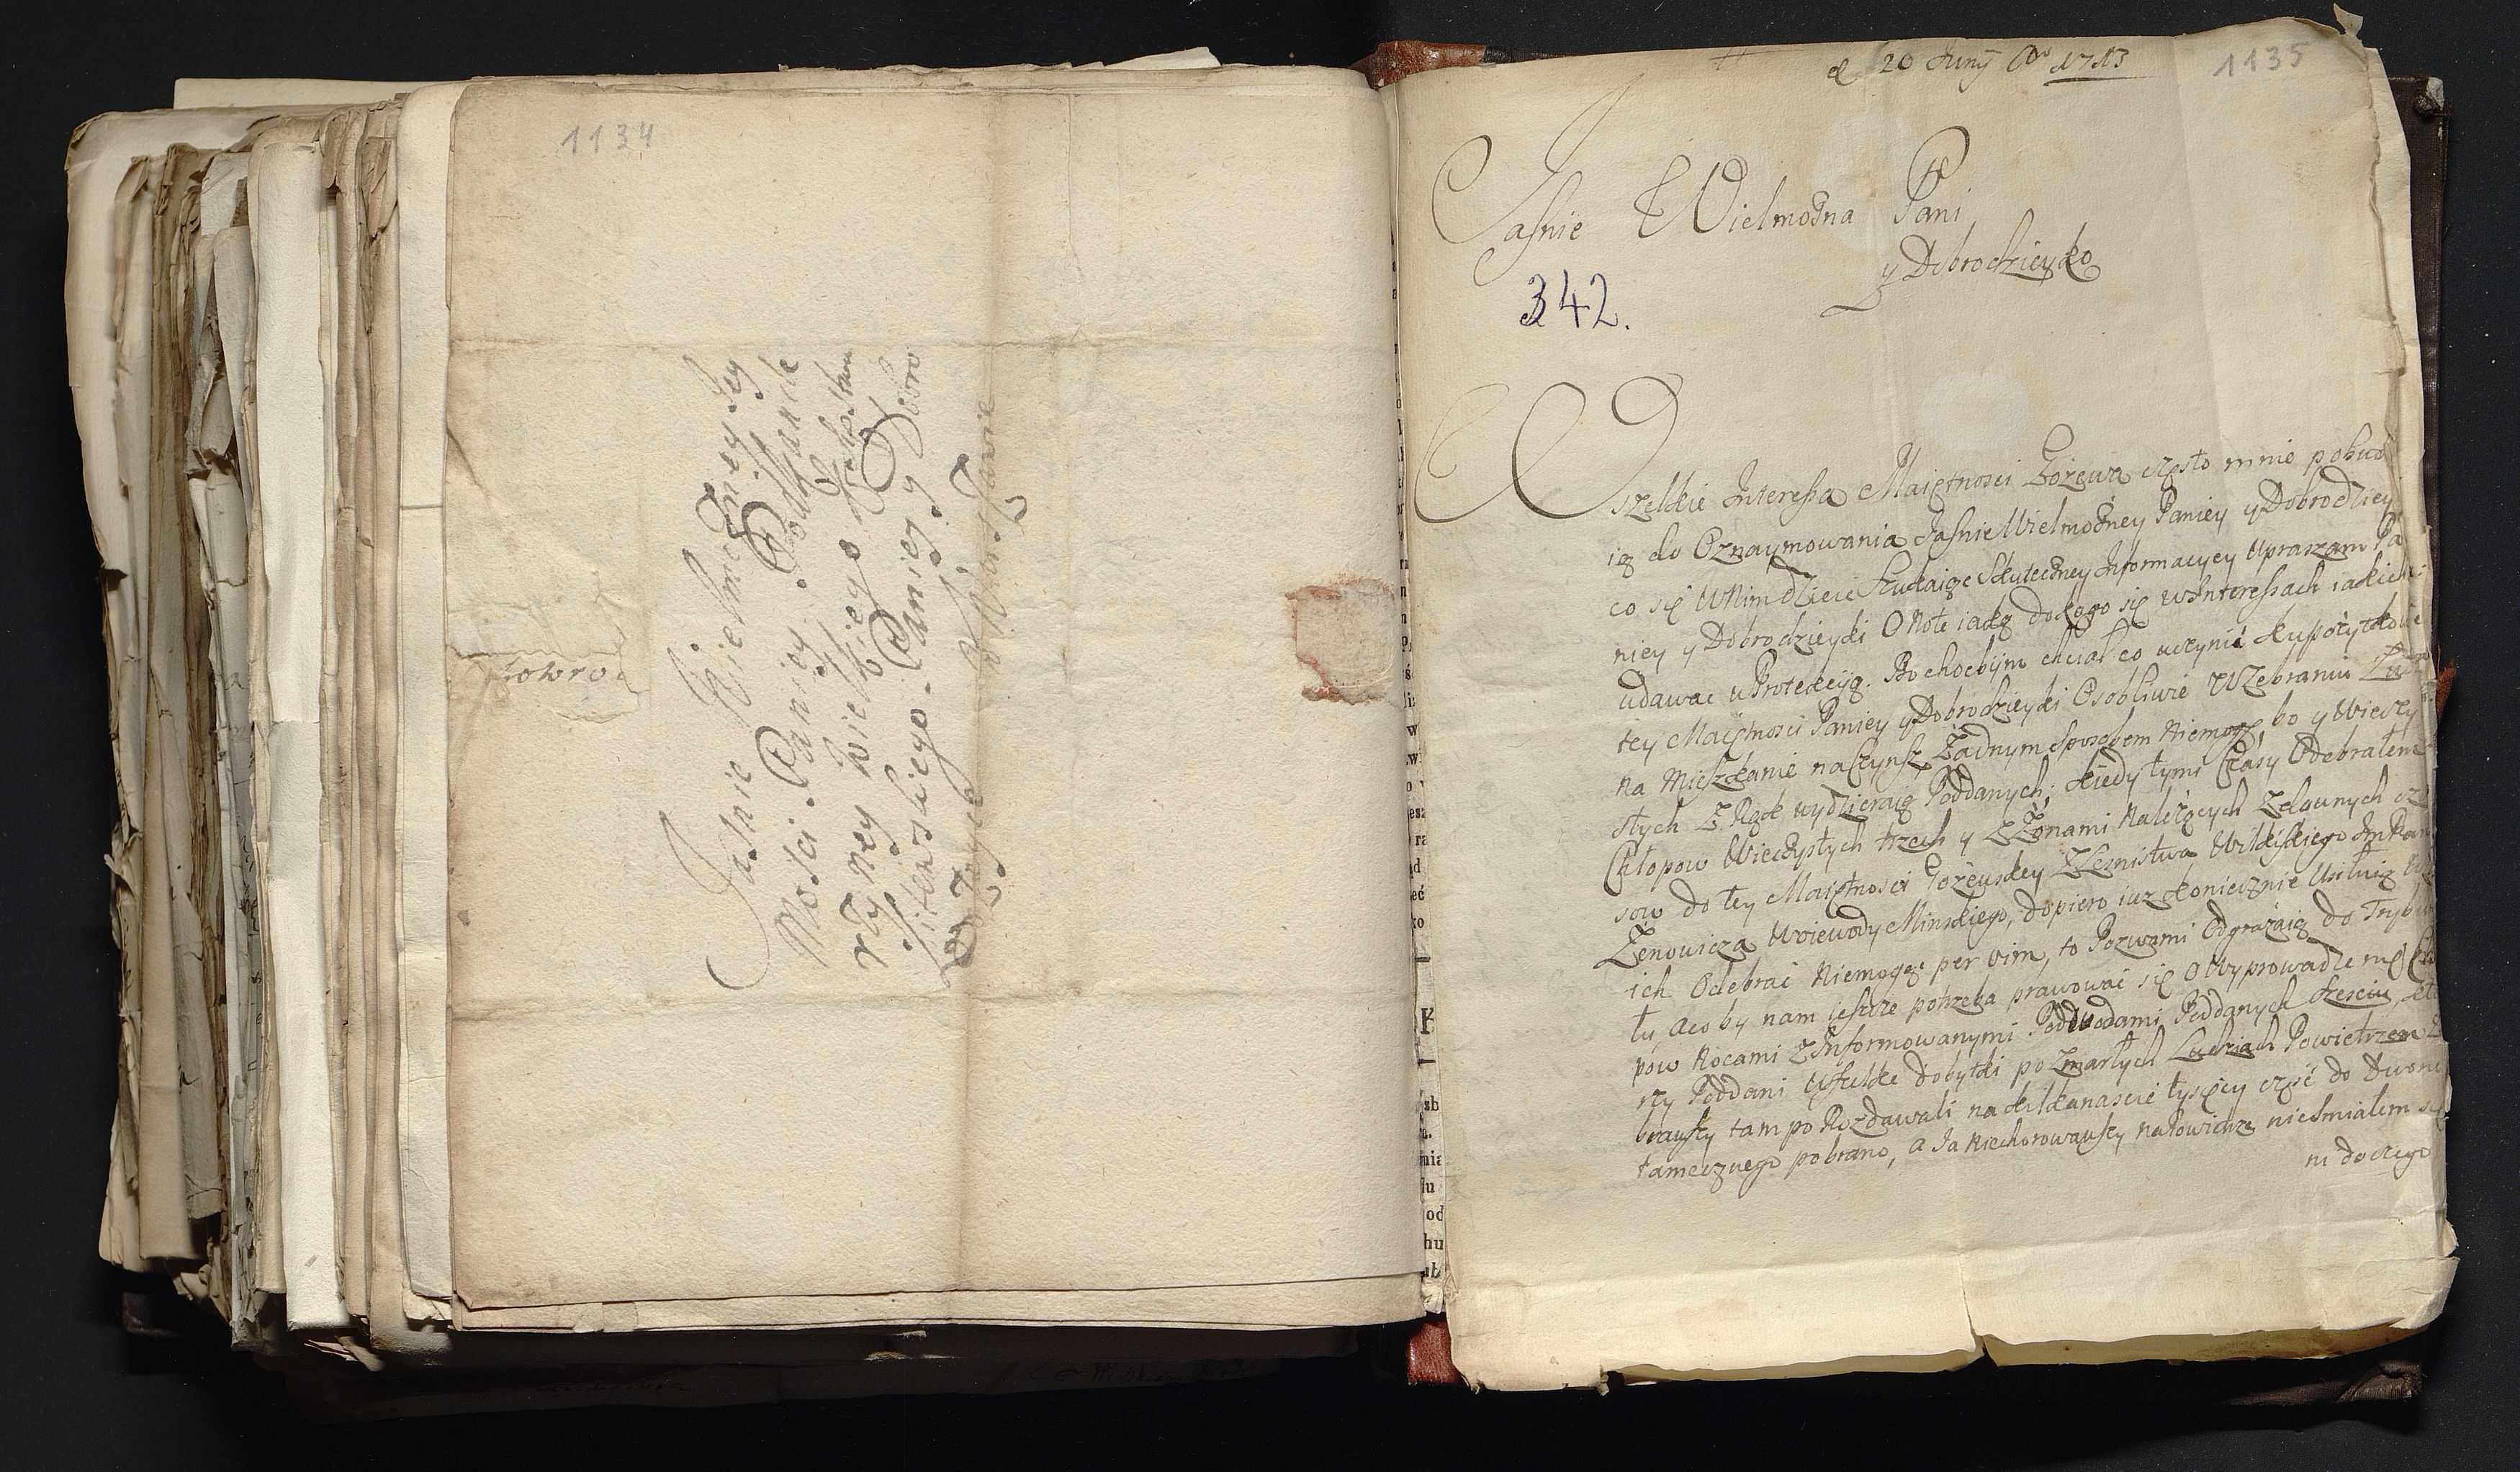 1134
Jasnie Wielmozney Jey
Mosci Paniey Podkancle
rzyney Wielkiego Xcstwa
Litewskiego Paniey y Dobro
w Warszawie
d 20 Juny Ao 1713
1135
Jasnie Wielmożna Pani
y Dobrodzieyko
342.
Wszelkie Interessa Maiętnosci Łożewa często mnie pobud
ią do Oznaymowania Jasnie Wielmożney Paniey y Dobrodziey
co się w Nim dzieie Szukaiąc Skuteczney Informacyey Upraszam Pa
niey y Dobrodzieyki O Notę iaką do kogo się w Interessach iakich
udawać u Protekcyą. Bo chocbym chciał co uczynić ku pożytkowi
tey Maiętnosci Paniey y Dobrodzieyki Osobliwie W Zebraniu
na Mieszkanie na Czynsz, Żadnym Sposobem Niemogę, bo y Wieczy
stych Z Rąk wydzieraią Poddanych; kiedy tymi Czasy Odebrałem
Chłopow Wieczystych trzech y z Żonami Należących Zdawnych cza
sow do tey Maiętnosci Zemstwa Wilejskiego Im Pan
Zenowicza Woiewody Minskiego, dopiero iuz koniecznie Usiłuią
ich Odebrać Niemogąc per vim, to Pozwami Odgrażaią do Trybu
łu, Aco by nam ieszcze potrzeba prawować się O Wyprowadzenie Chło
pow Nocami z Informowanymi Podwodami Poddanych Szesciu, kto
rzy Poddani Wszelkie dobytki po Zmarłych Ludziach Powietrzem
brawszy tam po Rozdawali na kilkanascie tysięcy część do Dworu
tamecznego pobrano, A Ja Niechorowawszy na Powietrze niesmiałem się
ni do czego